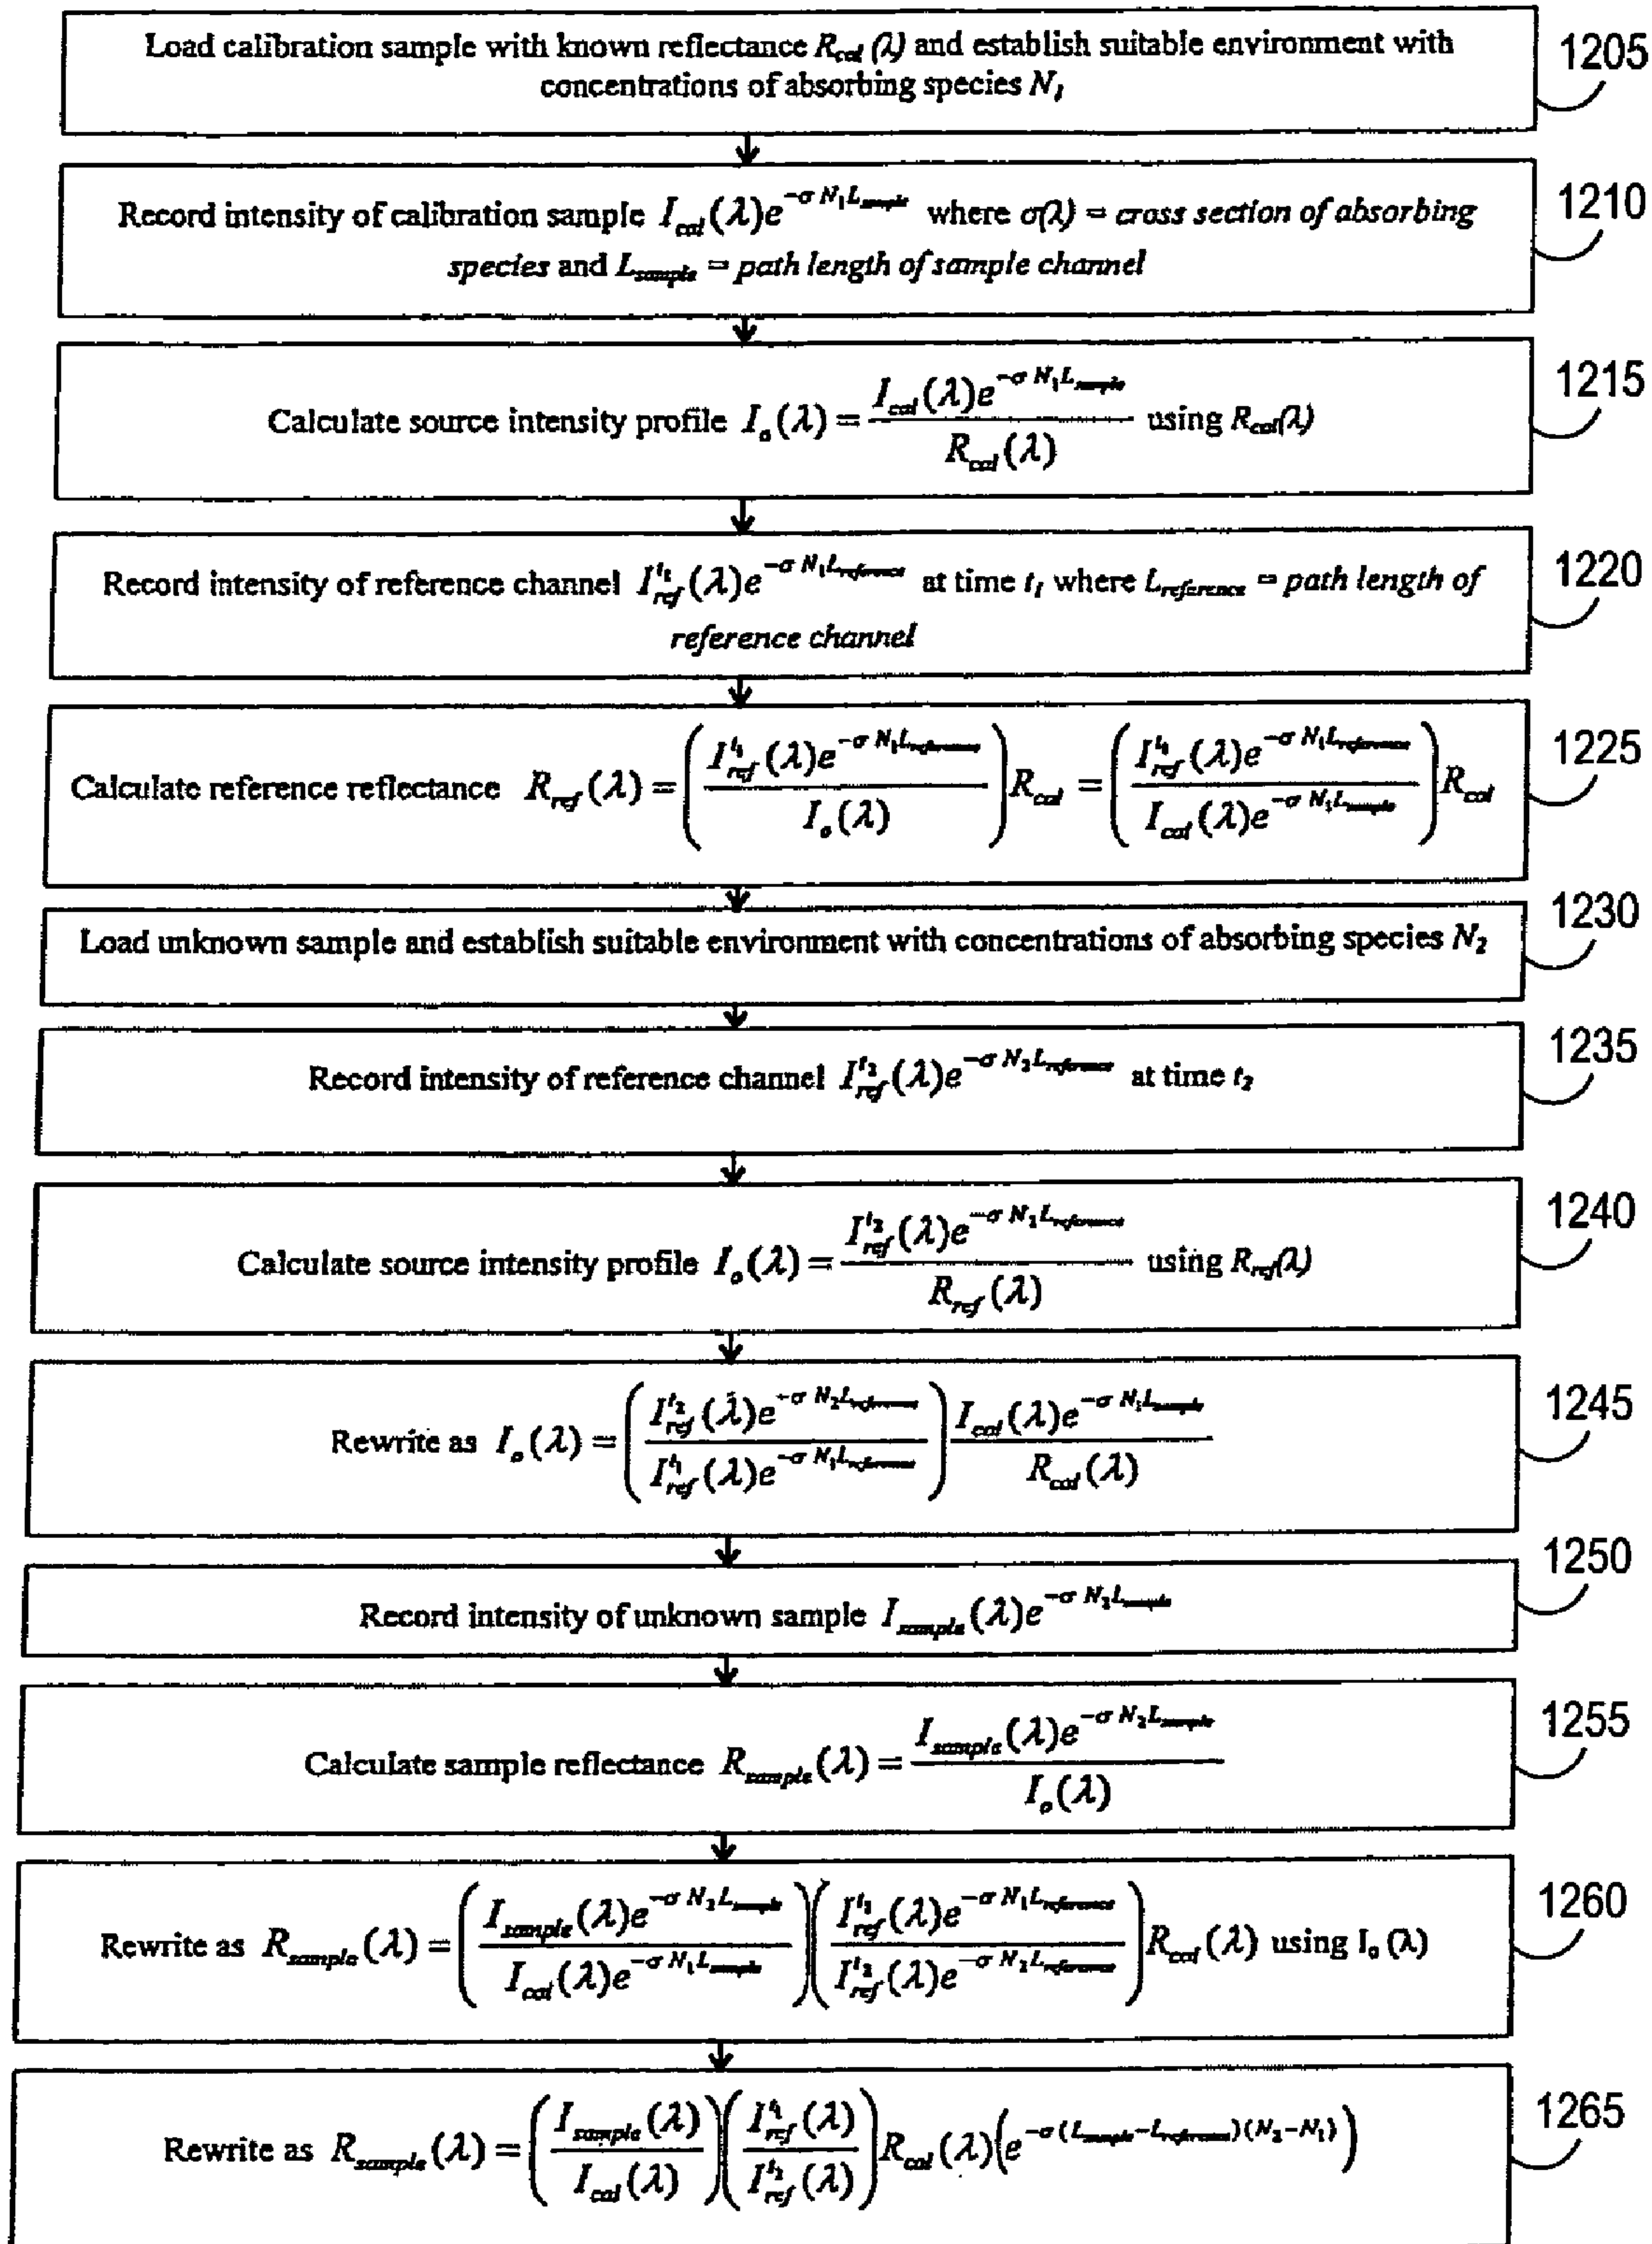 Load calibration sample with known reflectance R_cal (λ) and establish suitable environment with
concentrations of absorbing species N_1
1205
Record intensity of calibration sample I_cal(λ)e^{-σ N_1 L_sample} where σ(λ) = cross section of absorbing
species and L_sample = path length of sample channel
1210
Calculate source intensity profile I_o(λ) = \frac{I_cal(λ)e^{-σ N_1 L_sample}}{R_cal(λ)} using R_cal(λ)
1215
Record intensity of reference channel I_{ref}^{t_1}(λ)e^{-σ N_1 L_reference} at time t_1 where L_reference = path length of
reference channel
1220
Calculate reference reflectance R_ref(λ) = \left(\frac{I_{ref}^{t_1}(λ)e^{-σ N_1 L_reference}}{I_o(λ)}\right) R_cal = \left(\frac{I_{ref}^{t_1}(λ)e^{-σ N_1 L_reference}}{I_cal(λ)e^{-σ N_1 L_sample}}\right) R_cal
1225
Load unknown sample and establish suitable environment with concentrations of absorbing species N_2
1230
Record intensity of reference channel I_{ref}^{t_2}(λ)e^{-σ N_2 L_reference} at time t_2
1235
Calculate source intensity profile I_o(λ) = \frac{I_{ref}^{t_2}(λ)e^{-σ N_2 L_reference}}{R_ref(λ)} using R_ref(λ)
1240
Rewrite as I_o(λ) = \left(\frac{I_{ref}^{t_2}(λ)e^{-σ N_2 L_reference}}{I_{ref}^{t_1}(λ)e^{-σ N_1 L_reference}}\right) \frac{I_cal(λ)e^{-σ N_1 L_sample}}{R_cal(λ)}
1245
Record intensity of unknown sample I_sample(λ)e^{-σ N_2 L_sample}
1250
Calculate sample reflectance R_sample(λ) = \frac{I_sample(λ)e^{-σ N_2 L_sample}}{I_o(λ)}
1255
Rewrite as R_sample(λ) = \left(\frac{I_sample(λ)e^{-σ N_2 L_sample}}{I_cal(λ)e^{-σ N_1 L_sample}}\right)\left(\frac{I_{ref}^{t_1}(λ)e^{-σ N_1 L_reference}}{I_{ref}^{t_2}(λ)e^{-σ N_2 L_reference}}\right) R_cal(λ) using I_o (λ)
1260
Rewrite as R_sample(λ) = \left(\frac{I_sample(λ)}{I_cal(λ)}\right)\left(\frac{I_{ref}^{t_1}(λ)}{I_{ref}^{t_2}(λ)}\right) R_cal(λ)\left(e^{-σ(L_sample-L_reference)(N_2-N_1)}\right)
1265